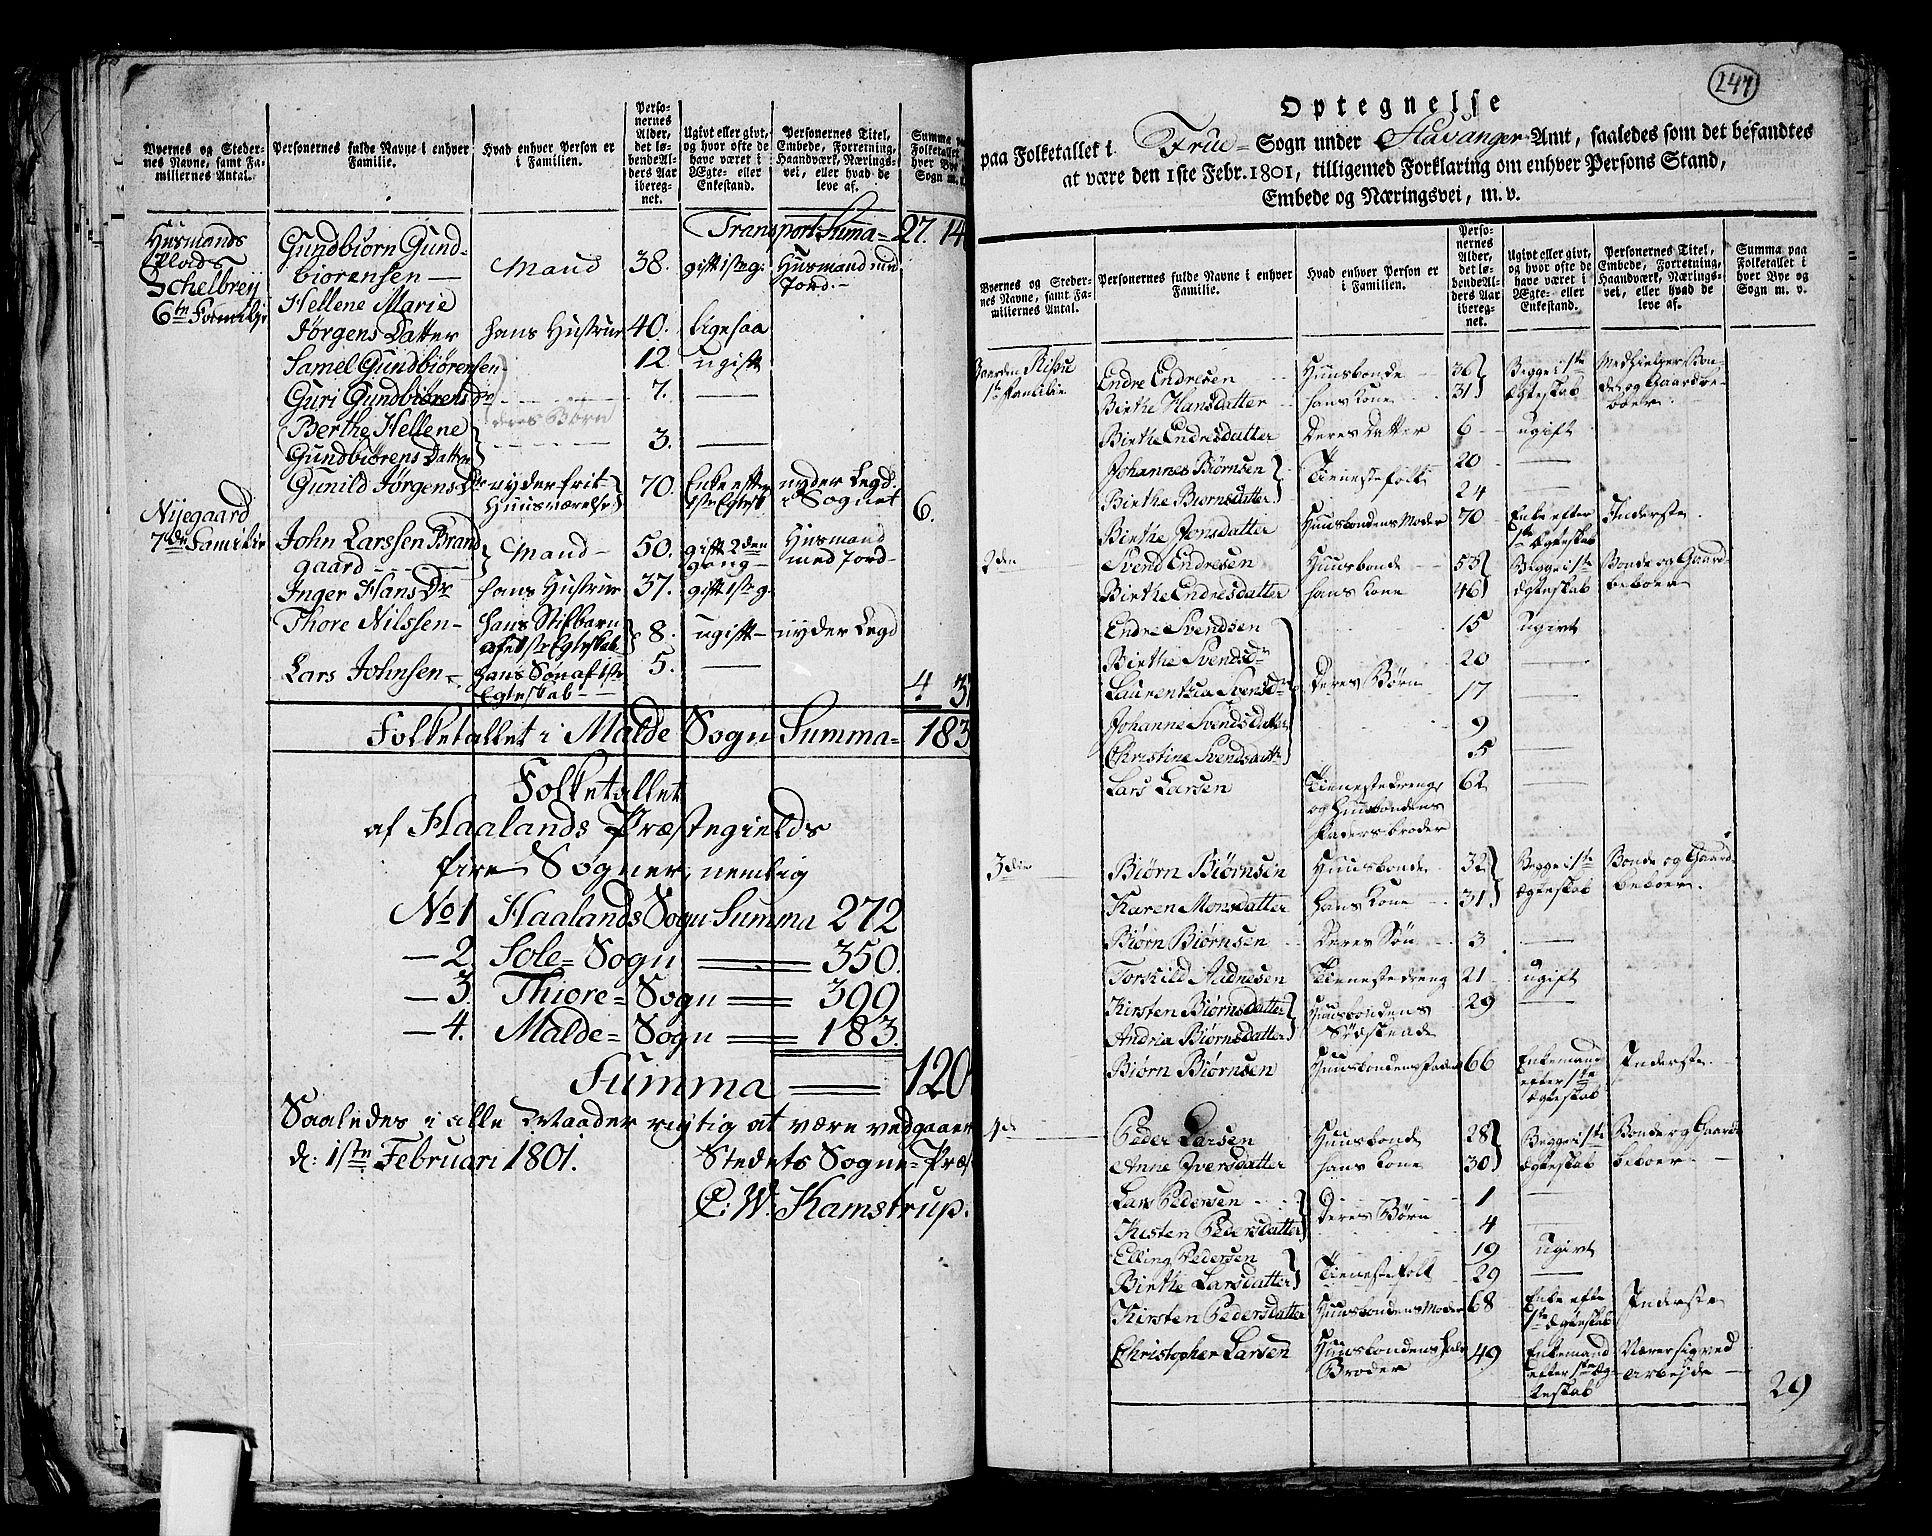 Byernes og Stedernes Navne, samt Familiernes Antal.
Personernes fulde Navne i enhver Familie.
Hvad enhver Person er i Familien.
Personernes Alder, det løbende Alders Aar iberegnet.
Ugivt eller givt, og hvor ofte de have været i Ægte- eller Enkestand.
Personernes Titel, Embede, Forretning, Haandværk, Næringsvei, eller hvad de leve af.
Summa paa Folketallet hver Bye Sogn m.
Transport Suma= 27. 14
Husmands
Plads
Schelbreij
6te Familje
Gundbiørn Gund-
biorensen — Mand 38. gift 1ste g: Husmand med Jord.-
Hellene Marie
Jørgens Datter hans Hustrue 40. ligesaa
Samel Gundbiørensen 12 ugift
Guri Gundbiørens Dr 7. —
deres Børn
Berthe Hellene
Gundbiørens Datter 3. —
Gunild Jørgens Dr nyder frit Huusværelse 70. Enke efter 1ste Egtesk. nyder Legd i Sognet 6.
Nijegaard
7de Familie
John Larssen Brand
gaard Mand- 50. gift 2den gang- Husmand med Jord-
Inger Hans Dr hans Hustrue 37. gift 1ste g.
Thore Nilssen- hans Stifbarn af et 1ste Egteskab 8. ugift- nyder Legd
Lars Johnsen- hans Søn af 1ste Egteskab 5. —
4 3
Folketallet i Malde Sogn Summa= 183
Folketallet
af Haalands Præstegields
fire Sogner, nemlig
No 1 Haalands Sogn Summa 272
— 2. Sole= Sogn 350.
— 3. Thiore= Sogn 399
— 4. Malde= Sogn 183.
Summa 120
Saaledes i alle Maader rigtig at være vedgaaer
d: 1ste Februari 1801. Stedets Sogne= Præs
C. W. Kamstrup.
247
Optegnelse
paa Folketallet i Frue= Sogn under Stavanger Amt, saaledes som det befandtes
at være den 1ste Febr. 1801, tilligemed Forklaring om enhver Persons Stand,
Embede og Næringsvei, m. v.
Byernes og Stedernes Navne, samt Familiernes Antal.
Personernes fulde Navne i enhver Familie.
Hvad enhver Person er i Familien.
Personernes Alder, det løbende Alders Aar iberegnet.
Ugivt eller givt, og hvor ofte de have været i Ægte- eller Enkestand.
Personernes Titel, Embede, Forretning, Haandværk, Næringsvei, eller hvad de leve af.
Summa paa Folketallet i hver Bye og Sogn m. v.
Gaarden
1ste Familie
Endre Endresen Huusbonde 36 Begge i 1ste Medhielger Bon-
Birthe Hansdatter hans Kone 31 Ægteskab de og Gaardbeboer
Birthe Endresdatter Deres Datter 6 ugift
Johannes Biørnsen Tienestefolk 20 —
Birthe Biørnsdatter 24 —
Birthe Jonsdatter Huusbondens Moder 70 Enke efter 1ste Ægteskab Inderste
2den Svend Endresen Huusbonde 53 Begge i 1ste Bonde og Gaard
Birthe Endresdatter hans Kone 46 Ægteskab beboer
Endre Svendsen 15 ugivt
Birthe Svendsdr 20 —
Laurentzia Svensdr Deres Børn 17 —
Johanne Svendsdatter 9
Christine Svendsdatter 5 —
Lars Larsen Tienestedreng og Huusbondens Faders broder 62 —
3die Biørn Biørnsen Huusbonde 32 Begge i 1ste Bonde og Gaard-
Karen Monsdatter hans Kone 31 Ægteskab beboer
Biørn Biørnsen Deres Søn 3 —
Torkild Aadnesen Tienestedreng 21 ugift
Kirsten Biørnsdatter Huusbondens 29 —
Andria Biørnsdatter Sødskende
Biørn Biørnsen Huusbondens Fader 66 Enkemand efter 1ste Ægteskab Inderste
4de Peder Larsen Huusbonde 28 Begge i 1ste Bonde og Gaard
Anne Iversdatter hans Kone 30 Ægteskab beboer
Lars Pedersen Deres Børn 1 —
Kisten Pedersdatter 4 —
Elling Pedersen 19 ugivt
Birthe Larsdatter Tienestefolk 29 —
Kirsten Pedersdatter Huusbondens Moder 68 Enke efter 1ste Ægteskab Inderste
Christopher Larsen Huusbondens Halv Broder 49 Enkemand efter 1ste Ægteskab Nærer sig ved arbejde
29